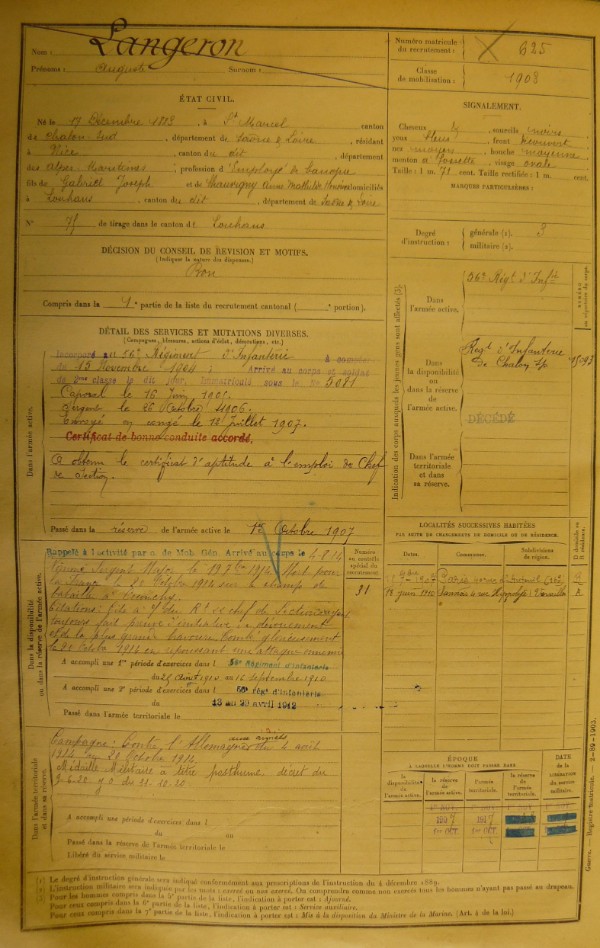 Nom : Langeron
Prénoms : Auguste Surnom :
Numéro matricule du recrutement : 625
Classe de mobilisation : 1908
ÉTAT CIVIL.
Né le 17 Décembre 1883, à St Marcel canton
de Chalon-Sud, département de Saône & Loire, résidant
à Nice, canton du dit département
des Alpes Maritimes, profession d'Employé de banque
fils de Gabriel Joseph et de Chauvigny Anne Mathilde domiciliés
à Louhans, canton du dit, département de Saône & Loire
N° de tirage dans le canton de Louhans
SIGNALEMENT.
Cheveux sourcils noirs
yeux bleus, front découvert
nez moyen, bouche moyenne
menton à fossette, visage ovale
Taille : 1 m. 71 cent. Taille rectifiée : 1 m. cent.
MARQUES PARTICULIÈRES :
Degré d'instruction : générale (1). 3
militaire (2).
DÉCISION DU CONSEIL DE REVISION ET MOTIFS.
(Indiquer la nature des dispenses.)
Bon
Compris dans la 1e partie de la liste du recrutement cantonal ( portion).
DÉTAIL DES SERVICES ET MUTATIONS DIVERSES.
(Campagnes, blessures, actions d'éclat, décorations, etc.)
Incorporé au 56e Régiment d'Infanterie à compter
du 15 Novembre 1904 Arrivé au corps et soldat
de 2me classe le dit jour. Immatriculé sous le n° 5081
Caporal le 16 Juin 1905.
Sergent le 26 Octobre 1906.
Envoyé en congé le 12 Juillet 1907.
Certificat de bonne conduite accordé.
A obtenu le certificat d'aptitude à l'emploi de Chef
de Section
Passé dans la réserve de l'armée active le 1er Octobre 1907
Dans l'armée active.
Indication des corps auxquels les jeunes gens sont affectés (3).
Dans l'armée active.
56e Régt d'Infie
Dans la disponibilité ou dans la réserve de l'armée active.
Régt d'Infanterie
de Chalon s/s
DÉCÉDÉ
Dans l'armée territoriale et dans sa réserve.
Rappelé à l'activité par o. de Mob. Gén. Arrivé au corps le 4.8.14
Nommé Sergent Major le 19 7bre 1914 Mort pour
la France le 20 Octobre 1914 sur le champs de
bataille à
Citations :
toujours fait preuve d'initiative de dévouement
et de la plus grande bravoure. Tombé glorieusement
le 20 Octobre 1914 en repoussant une attaque ennemie
A accompli une 1re période d'exercices dans l 56e Régiment d'Infanterie
du 25 Août 1910 au 16 Septembre 1910
A accompli une 2e période d'exercices dans l 56e Régt d'Infanterie
du 13 au 29 avril 1912
Passé dans l'armée territoriale le
Numéro au contrôle spécial du recrutement
31
Dans la disponibilité ou dans la réserve de l'armée active.
LOCALITÉS SUCCESSIVES HABITÉES
PAR SUITE DE CHANGEMENTS DE DOMICILE OU DE RÉSIDENCE.
Dates. Communes. Subdivisions de région. D domicile ou R résidence.
Paris
18 Juin 1912 Versailles R
Campagne : Contre l'Allemagne aux armées du 4 août
1914 au 20 Octobre 1914
Médaille Militaire à titre posthume décret du
A accompli une période d'exercices dans l
du au
Passé dans la réserve de l'armée territoriale le
Libéré du service militaire le
Dans l'armée territoriale et dans sa réserve.
ÉPOQUE
À LAQUELLE L'HOMME DOIT PASSER DANS
la disponibilité de l'armée active. la réserve de l'armée active. l'armée territoriale. la réserve de l'armée territoriale.
DATE de la LIBÉRATION du service militaire.
1907 1917
1er OCT. 1er OCT.
(1) Le degré d'instruction générale sera indiqué conformément aux prescriptions de l'instruction du 4 décembre 1889.
L'instruction militaire sera indiquée par les mots : exercé ou non exercé. On comprendra comme non exercés tous les hommes n'ayant pas passé au drapeau.
Pour les hommes compris dans la 5e partie de la liste, l'indication à porter est : Ajourné.
Pour ceux compris dans la 6e partie de la liste, l'indication à porter est : Service auxiliaire.
Pour ceux compris dans la 7e partie de la liste, l'indication à porter est : Mis à la disposition du Ministre de la Marine. (Art. 4 de la loi.)